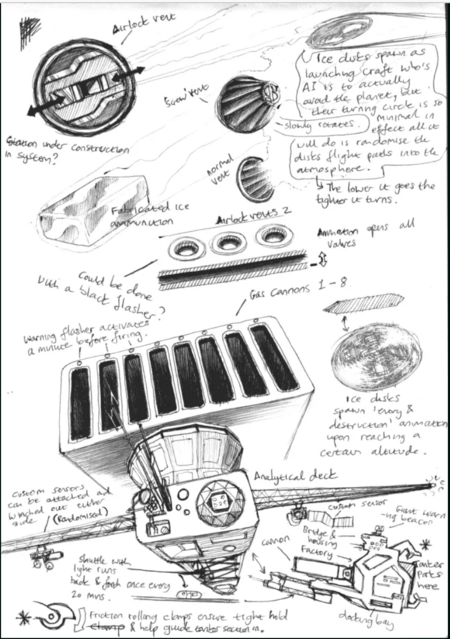 Airlock vent
Ice disks spawn as
launching craft who's
AI is to actually
avoid the planet, but
their turning circle is so
minimal in
effect all it
will do is randomise the
disks flight paths into the
atmosphere.
The lower it goes the
tighter it turns.
Screw vent
slowly rotates.
Station under construction
in system?
normal
vent
Fabricated ice
ammunition
Airlock vents 2
Animation opens all
valves
Could be done
with a black flasher?
Gas cannons 1-8
Warning flasher activates
a minute before firing.
Ice disks
spawn 'every &
destruction' animation
upon reaching a
certain altitude.
Analytical deck
custom sensors
can be attached and
winched out either
side.
(Randomised)
custom sensor
cannon
Bridge &
housing
Factory
parts
here
shuttle with
light runs
back & forth once every
20 mins.
docking bay
Friction rolling clamps ensure tight hold
& help guide center section in.